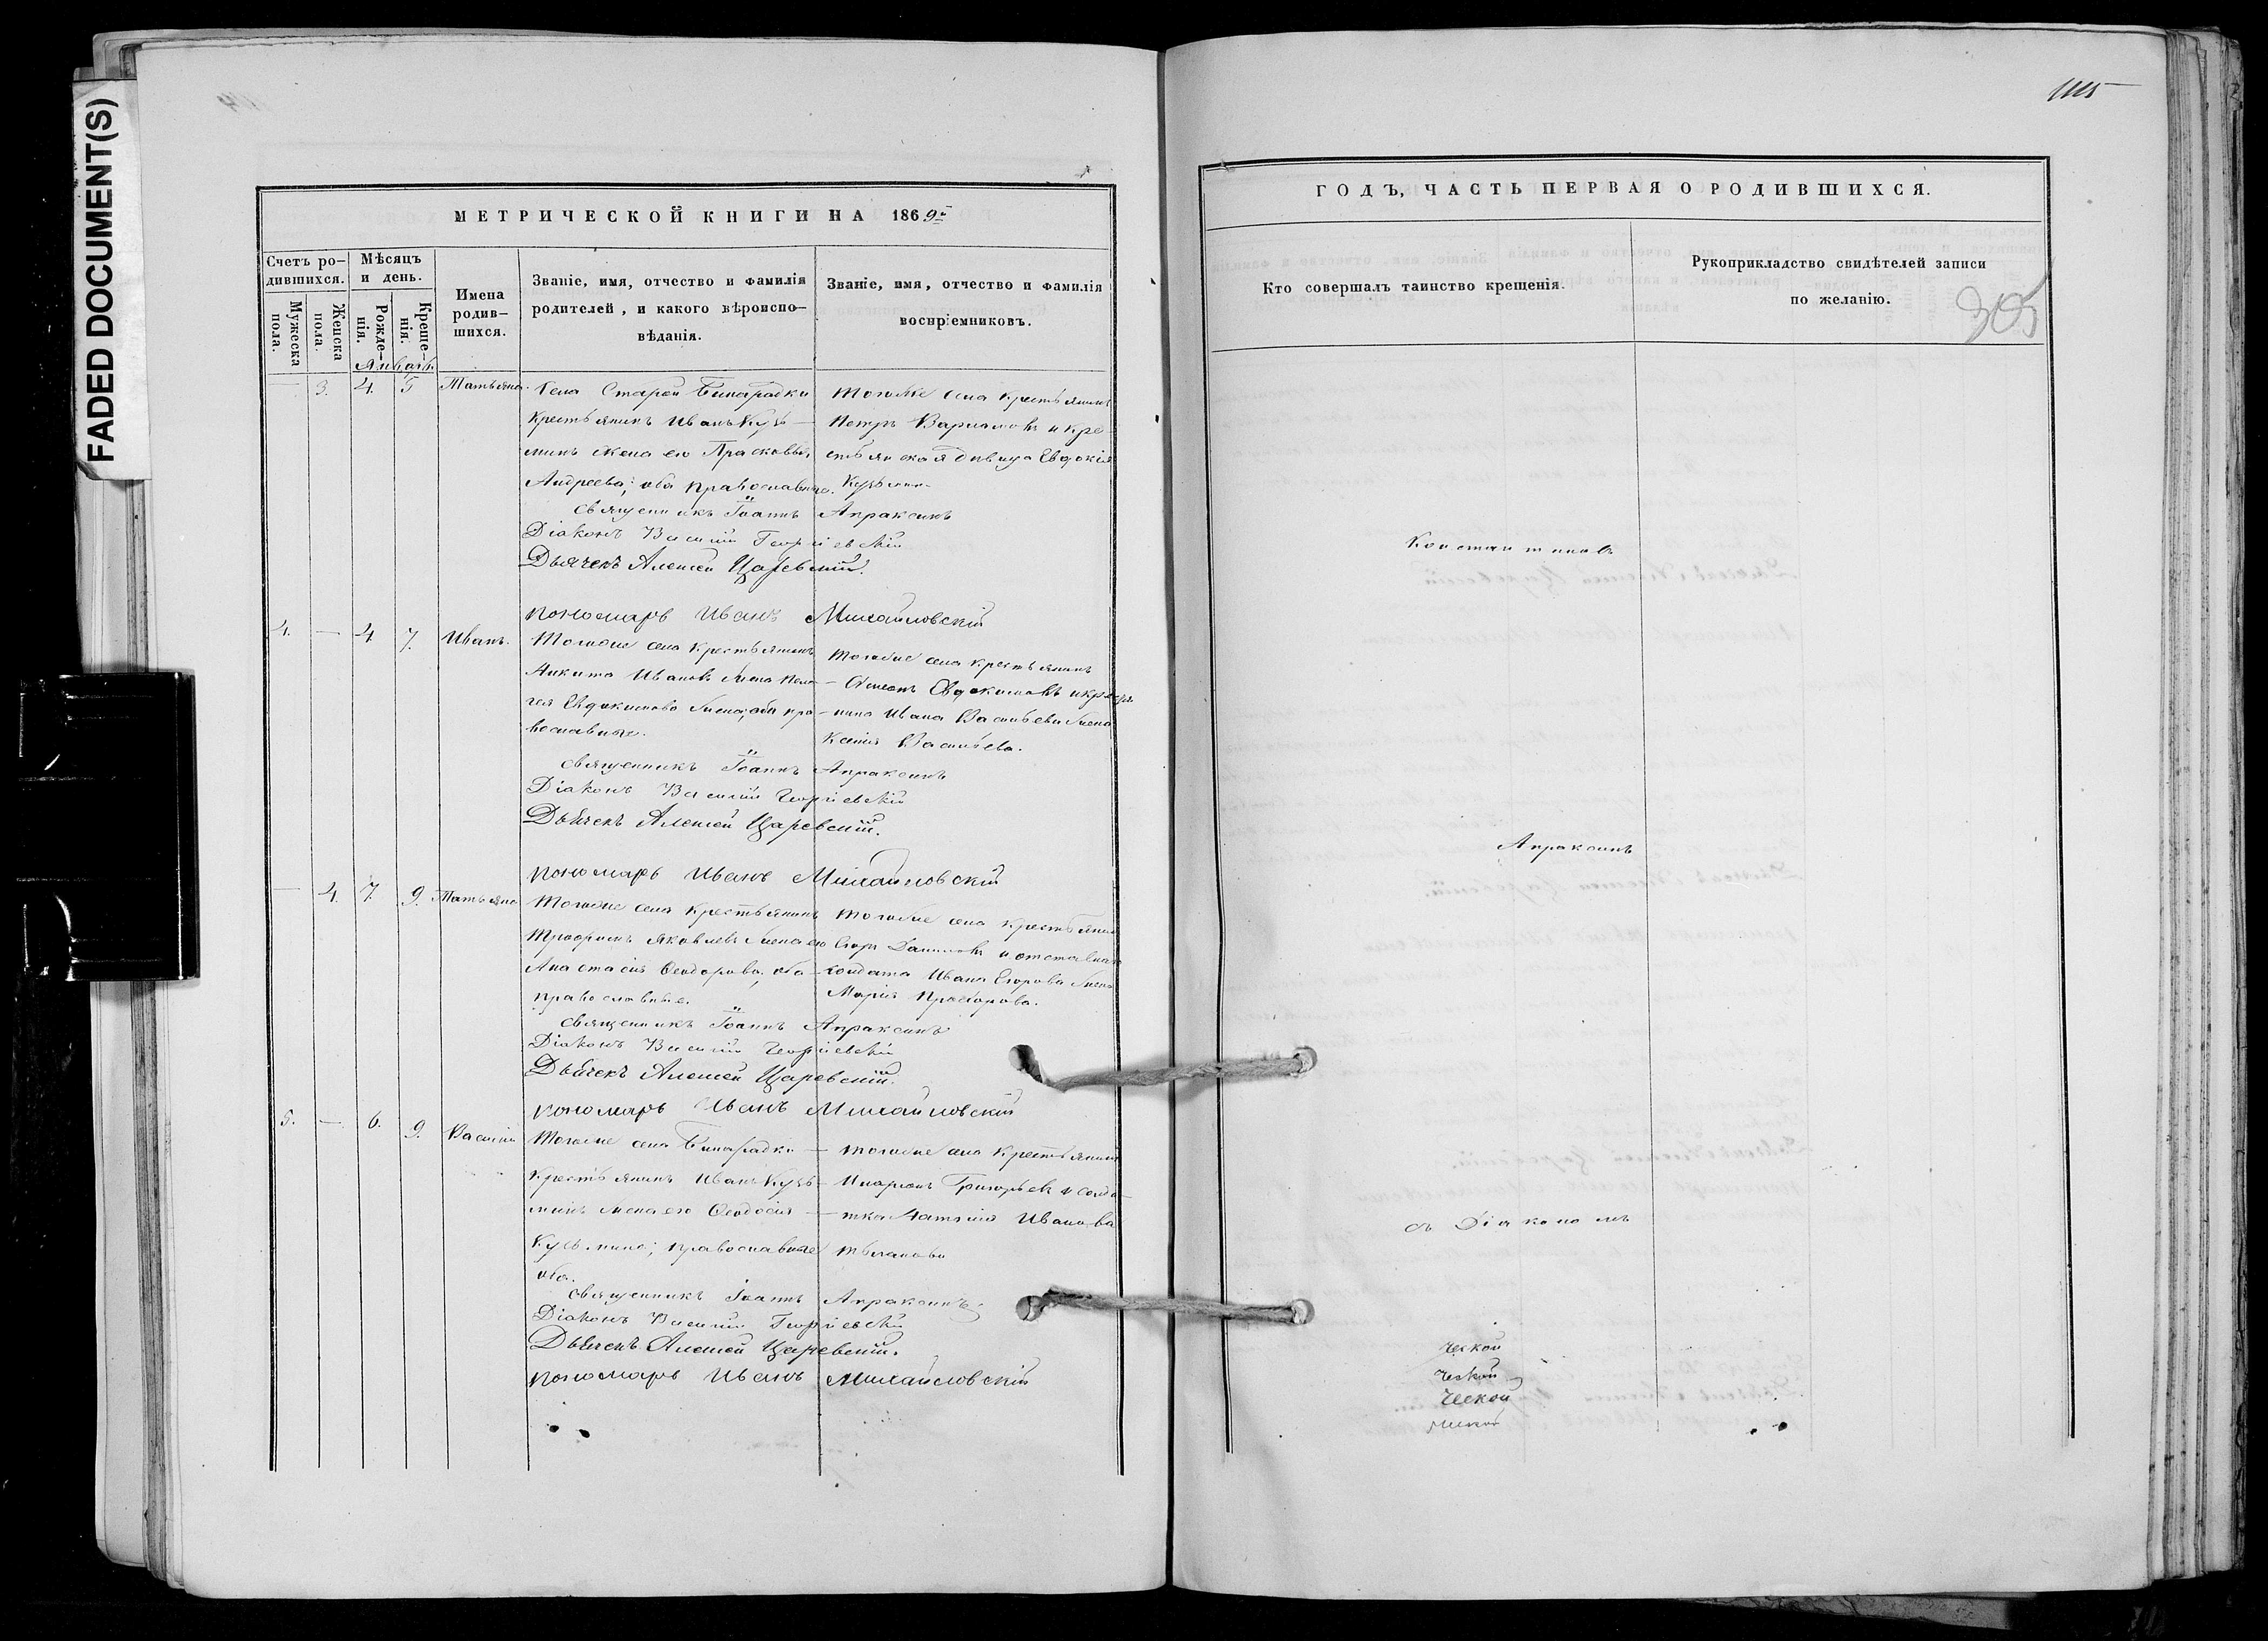 FADED DOCUMENT(S)
МЕТРИЧЕСКОЙ КНИГИ НА 1869й
Счетъ ро-
дившихся.
Мужеска
пола.
Женска
пола.
Мѣсяцъ
и день.
Рожде-
нія.
Креще-
нія.
Имена
родив-
шихся.
Званіе, имя, отчество и фамилія
родителей, и какого вѣроиспо-
вѣданія.
Званіе, имя, отчество и фамилія
воспріемниковъ.
Январь
— 3. 4. 5 Татьяна.
Села Старой Бинарадки
крестьянинъ Иванъ Кузь-
минъ жена его Прасковья
Андреева; оба православные.
Тогоже села крестьянинъ
Петръ Варламовъ и кре-
стьянская дѣвица Евдокія
Кузьмина
Священникъ Іоаннъ Апраксинъ
Діаконъ Василій Георгіевскій
Дьячекъ Алексей Царевскій.
пономарь Иванъ Михайловскій
4. — 4 7. Иванъ.
Тогоже села крестьянинъ
Никита Ивановъ жена Пела-
гея Евдокимова жена; оба пра-
вославные.
Тогоже села крестьянинъ
Евдокимовъ
Ивана Васильева жена
Ксенія Васильева.
Священникъ Іоаннъ Апраксинъ
Діаконъ Василій Георгіевскій
Дьячекъ Алексей Царевскій.
пономарь Иванъ Михайловскій
— 4. 7. 9. Татьяна
Тогоже села крестьянинъ
Трофимъ Яковлевъ жена его
Анастасія Ѳеодорова, оба
православные.
Тогоже села крестьянинъ
Егоръ Даниловъ и отставнаго
солдата Ивана Егорова жена
Марія Прохорова.
Священникъ Іоаннъ Апраксинъ
Діаконъ Василій Георгіевскій
Дьячекъ Алексей Царевскій.
пономарь Иванъ Михайловскій
5. — 6. 9. Василій
Тогоже села Бинарадки
крестьянинъ Иванъ Кузь-
минъ жена его Ѳеодосія
Кузьмина; православные
оба.
Тогоже села крестьянинъ
Иларіонъ Григорьевъ и солда-
тка Иванова
Священникъ Іоаннъ Апраксинъ
Діаконъ Василій Георгіевскій
Дьячекъ Алексей Царевскій.
пономарь Иванъ Михайловскій
ГОДЪ, ЧАСТЬ ПЕРВАЯ О РОДИВШИХСЯ.
Кто совершалъ таинство крещенія.
Рукоприкладство свидѣтелей записи
по желанію.
305
Константиновъ
Апраксинъ
съ Діакономъ
ческой
ческой
ческой